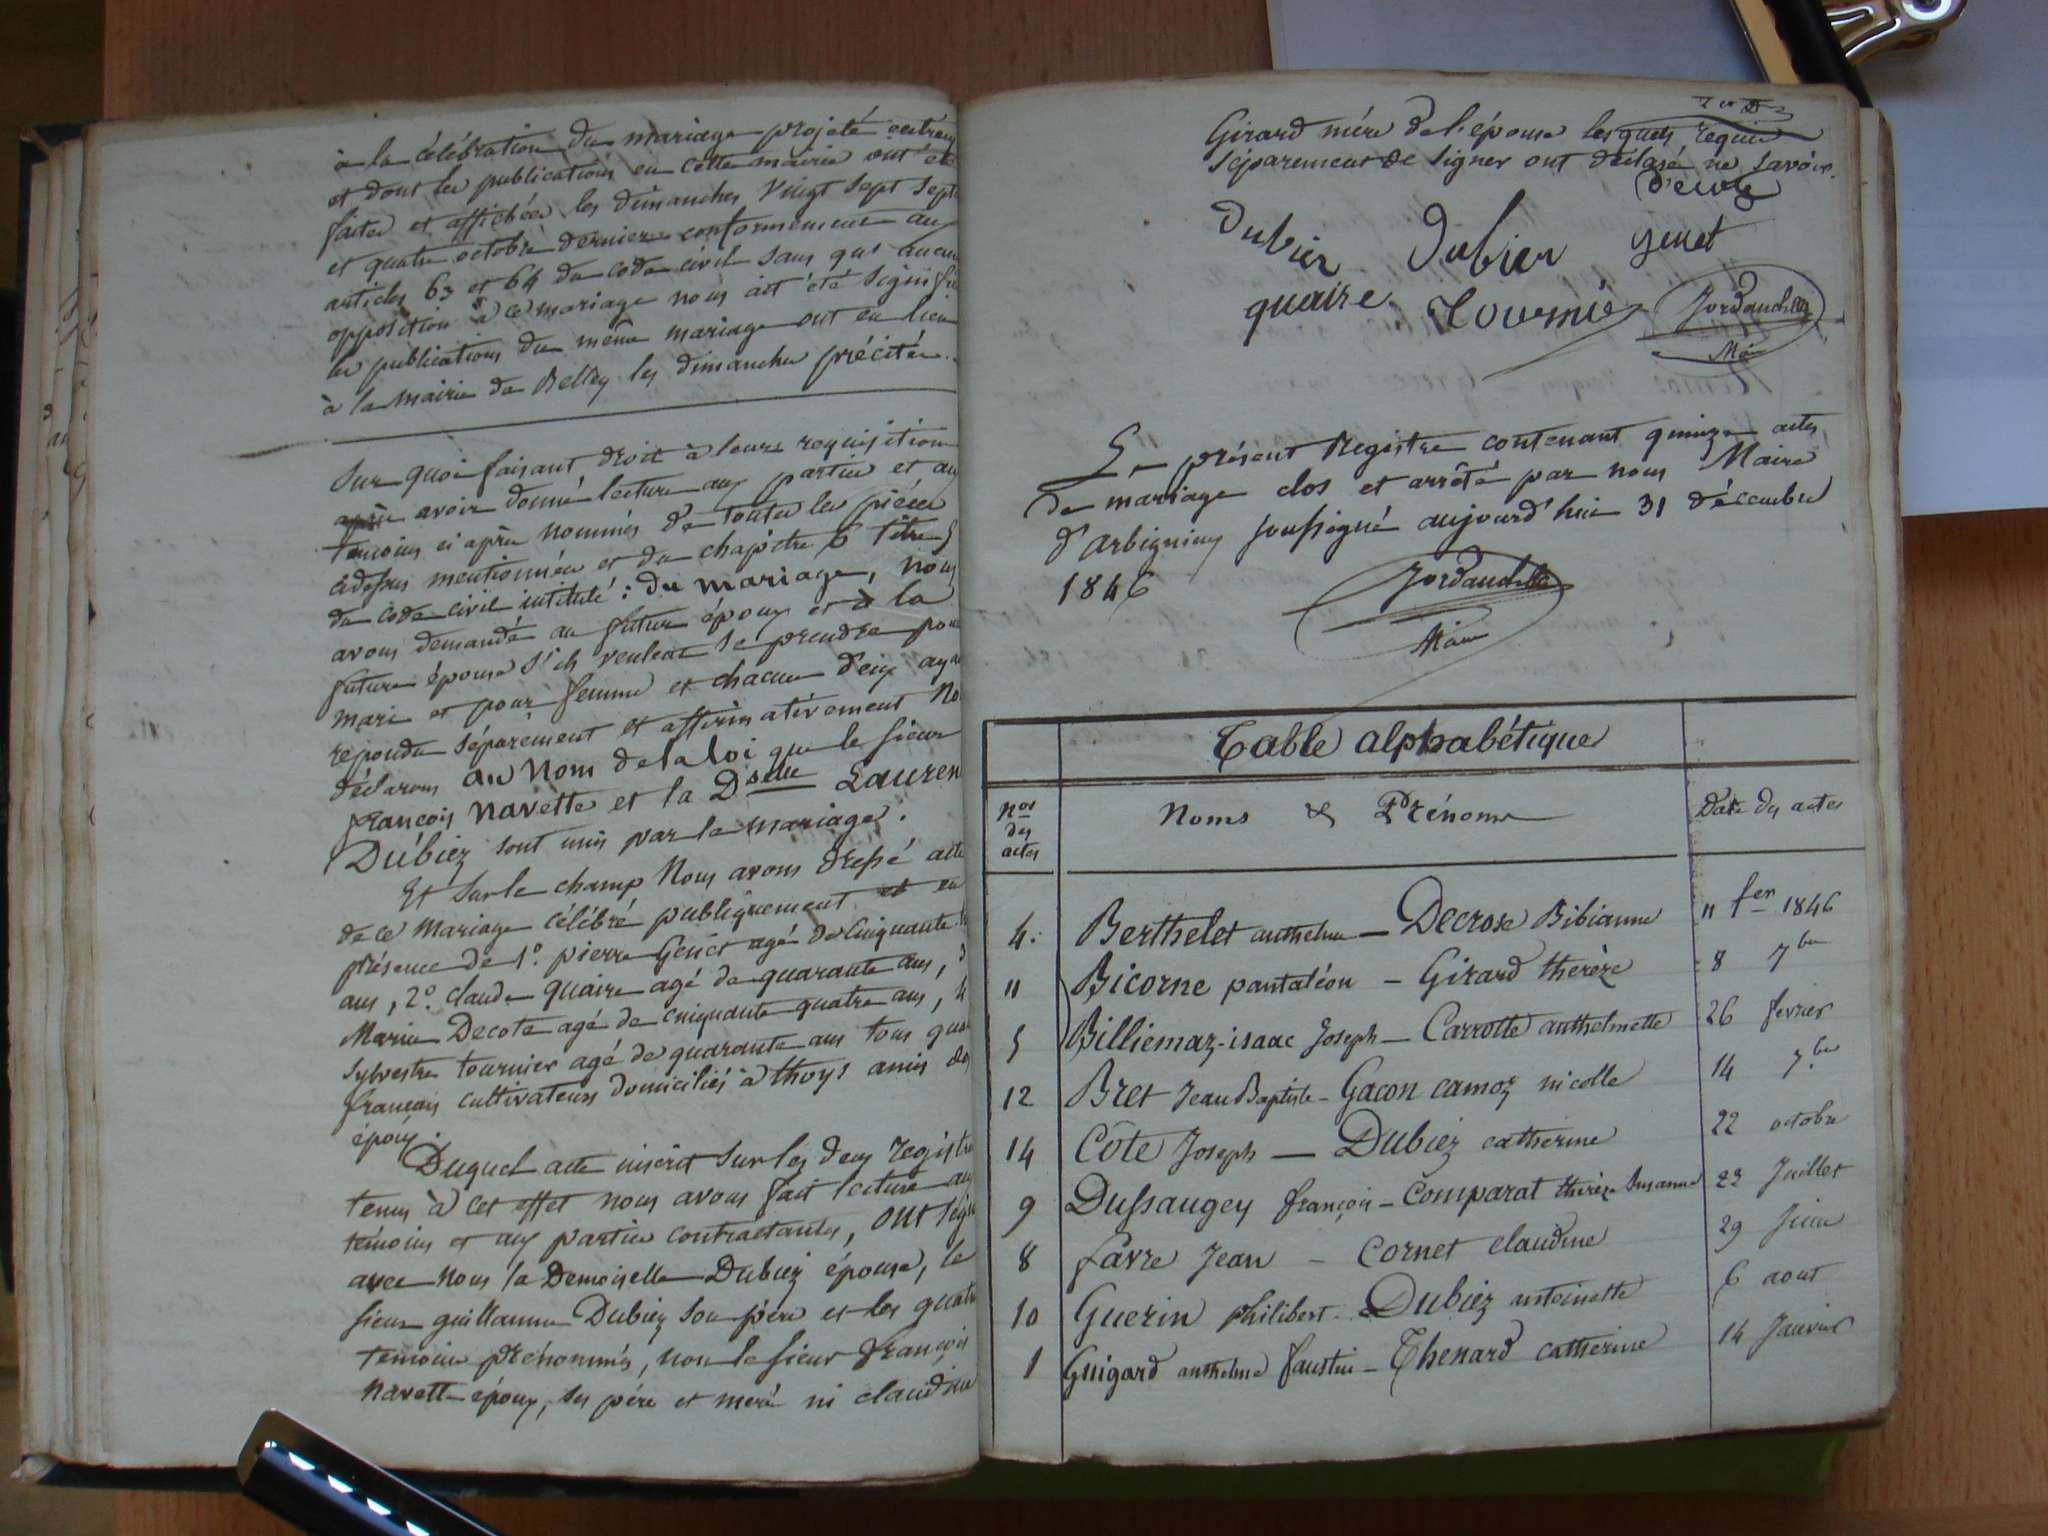 à la célébration du mariage projeté entreux
et dont les publications en cette mairie ont été
faites et affichées les dimanches vingt sept sept
et quatre octobre dernier conformément aux
articles 63 et 64 du code civil sans que aucune
opposition à ce mariage nous ait été signifiée
les publications du même mariage ont eu lieu
à la mairie de Belley les dimanches précités.
Sur quoi faisant droit à leurs requisition
après avoir donné lecture aux parties et aux
témoins ci après nommés de toutes les pièces
cidessus mentionnées et du chapitre 6 titre 5
du code civil intitulé : du mariage, nous
avons demandé au futur époux et à la
future épouse s'ils veulent se prendre pour
mari et pour femme et chacun d'eux ayant
repondu séparément et affirmativement No
déclarons au Nom de la loi que le sieur
françois Navette et la Dselle Lauren
Dubiez sont unis par le mariage.
Et sur le champ Nous avons dressé acte
de ce mariage célébré publiquement et en
présence de 1º. pierre Genet agé de cinquante
ans, 2º. claude quaire agé de quarante ans, 3
Marin Decote agé de cinquante quatre ans, 4
Sylvestre tournier agé de quarante ans tous quat
français cultivateurs domiciliés à thoys amis des
époux.
Duquel acte inscrit sur les deux registres
tenus à cet effet nous avons fait lecture aux
témoins et aux parties contractantes, ont signé
avec nous la Demoiselle Dubiez épouse, le
sieur guillaume Dubiez son père et les quatre
temoins prénommés, non le sieur françois
Navette époux, ses père et mère ni claudine
Girard mère de l'épouse lesquels requis
séparement de signer ont déclaré ne savoir.
Decote
Dubiez Dubiez genet
quaire Tournié Jordan
Maire
Le présent Registre contenant quinze actes
de mariage clos et arrêté par nous Maire
d'arbignieu soussigné aujourd'hui 31 décembre
1846
Jordan
Maire
Table alphabétique
Nos des actes Noms & Prénoms Date des actes
4. Berthelet anthelme — Decrose Bibianne 11 fer 1846
11 Bicorne pantaléon — Girard thérèze 8 7bre
5 Billiemaz isaac Joseph — Carrotte anthelmette 26 fevrier
12 Bret Jean Baptiste — Gacon camoz nicolle 14 7.bre
14 Côte Joseph — Dubiez catherine 22 octobre
9 Dussaugey françois — Comparat thérèze Susanne 23 Juillet
8 favre Jean — Cornet claudine 29 Juin
10 Guerin philibert — Dubiez antoinette 6 aout
1 Guigard anthelme faustin — Thenard catherine 14 Janvier